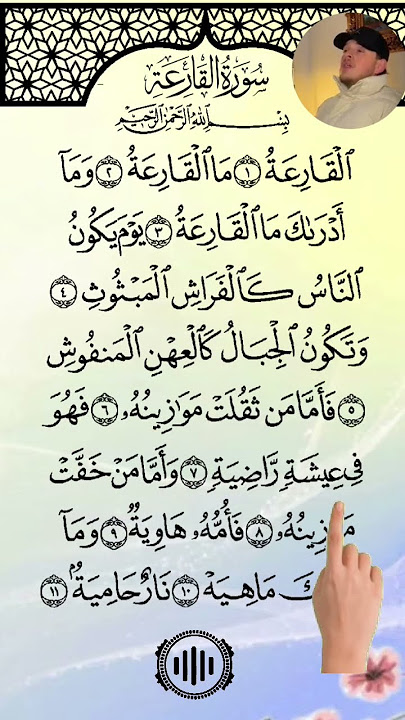 سُورَةُ القَارِعَةِ
بِسْمِ ٱللَّهِ ٱلرَّحْمَٰنِ ٱلرَّحِيمِ
ٱلْقَارِعَةُ ١ مَا ٱلْقَارِعَةُ ٢ وَمَآ
أَدْرَىٰكَ مَا ٱلْقَارِعَةُ ٣ يَوْمَ يَكُونُ
ٱلنَّاسُ كَٱلْفَرَاشِ ٱلْمَبْثُوثِ ٤
وَتَكُونُ ٱلْجِبَالُ كَٱلْعِهْنِ ٱلْمَنفُوشِ
٥ فَأَمَّا مَن ثَقُلَتْ مَوَٰزِينُهُۥ ٦ فَهُوَ
فِى عِيشَةٍ رَّاضِيَةٍ ٧ وَأَمَّا مَنْ خَفَّتْ
٨ فَأُمُّهُۥ هَاوِيَةٌ ٩ وَمَآ
مَا هِيَهْ ١٠ نَارٌ حَامِيَةٌۢ ١١